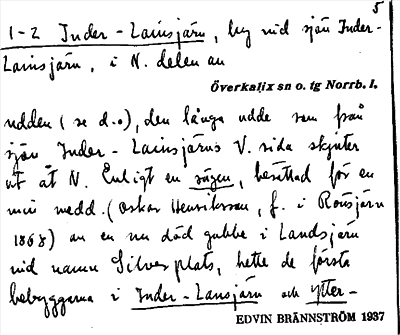 5
1-2 Inder-Lainsjärn, by vid sjön Inder-
Lainsjärn, i N. delen av
Överkalix sn o. tg Norrb. l.
udden (se d.o), den långa udde som från
sjön Inder-Lainsjärns V. sida skjuter
ut åt N. Enligt en sägen, berättad för en
min medd. (Oskar Henriksson, f. i Rönsjärn
1868) av en nu död gubbe i Landsjärn
vid namn Silverplats, hette de första
bebyggarna i Inder-Lansjärn och Ytter-
EDVIN BRÄNNSTRÖM 1937